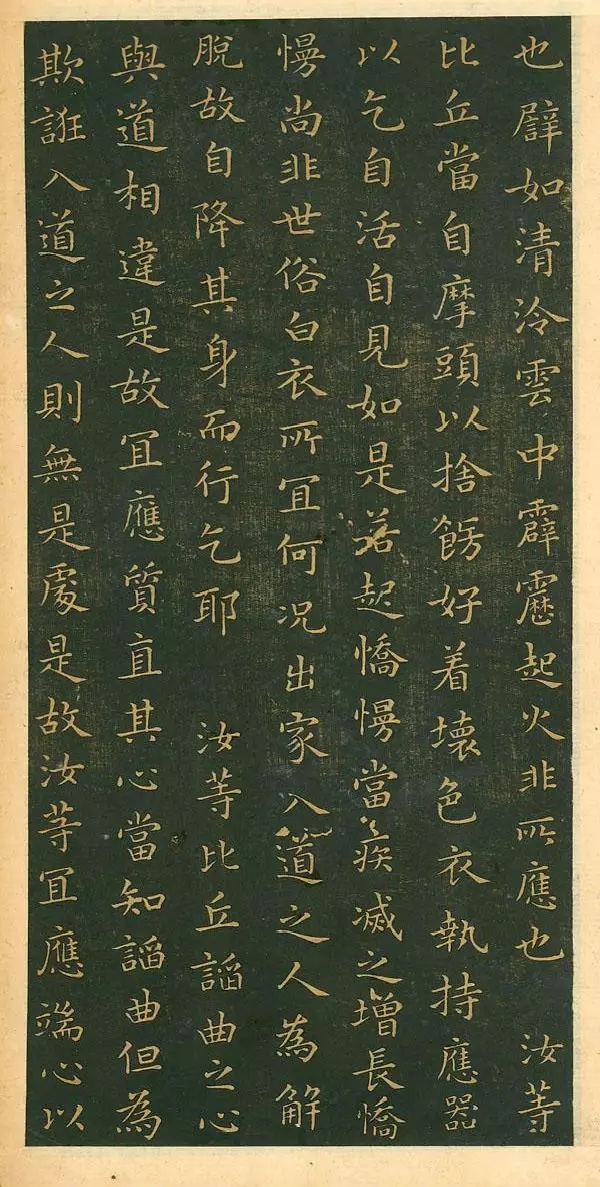 也譬如清泠雲中霹靂起火非所應也　汝等
比丘當自摩頭以捨餝好着壞色衣執持應器
以乞自活自見如是若起憍慢當疾滅之增長憍
慢尚非世俗白衣所冝何況出家入道之人為解
脫故自降其身而行乞耶　汝等比丘謟曲之心
與道相違是故冝應質直其心當知謟曲但為
欺誑入道之人則無是處是故汝等冝應端心以